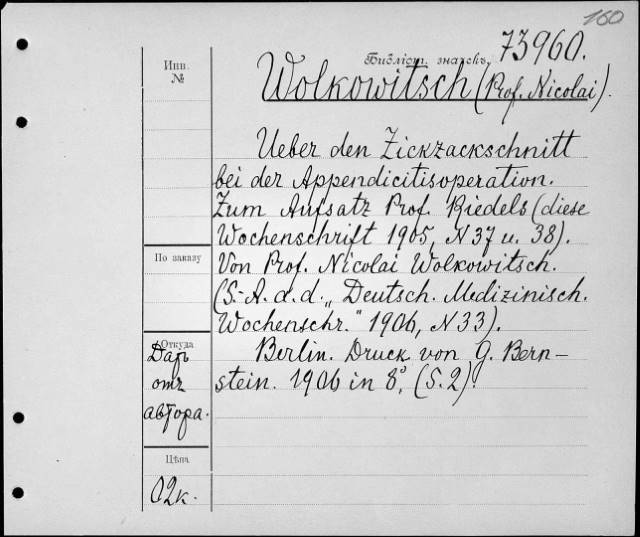 160
Библіот. значекъ, 73960.
Инв.
№
Wolkowitsch (Prof. Nicolai).
Ueber den Zickzackschnitt
bei der Appendicitisoperation.
Zum Aufsatz Prof. Riedels (diese
Wochenschrift 1905, N 37 u. 38).
По заказу
Von Prof. Nicolai Wolkowitsch.
(S.-A. a. d. „Deutsch. Medizinisch.
Wochenschr." 1906, N 33).
Откуда
Даръ
отъ
автора.
Berlin. Druck von G. Bern-
stein. 1906 in 8°, (S. 2).
Цѣна
02к.